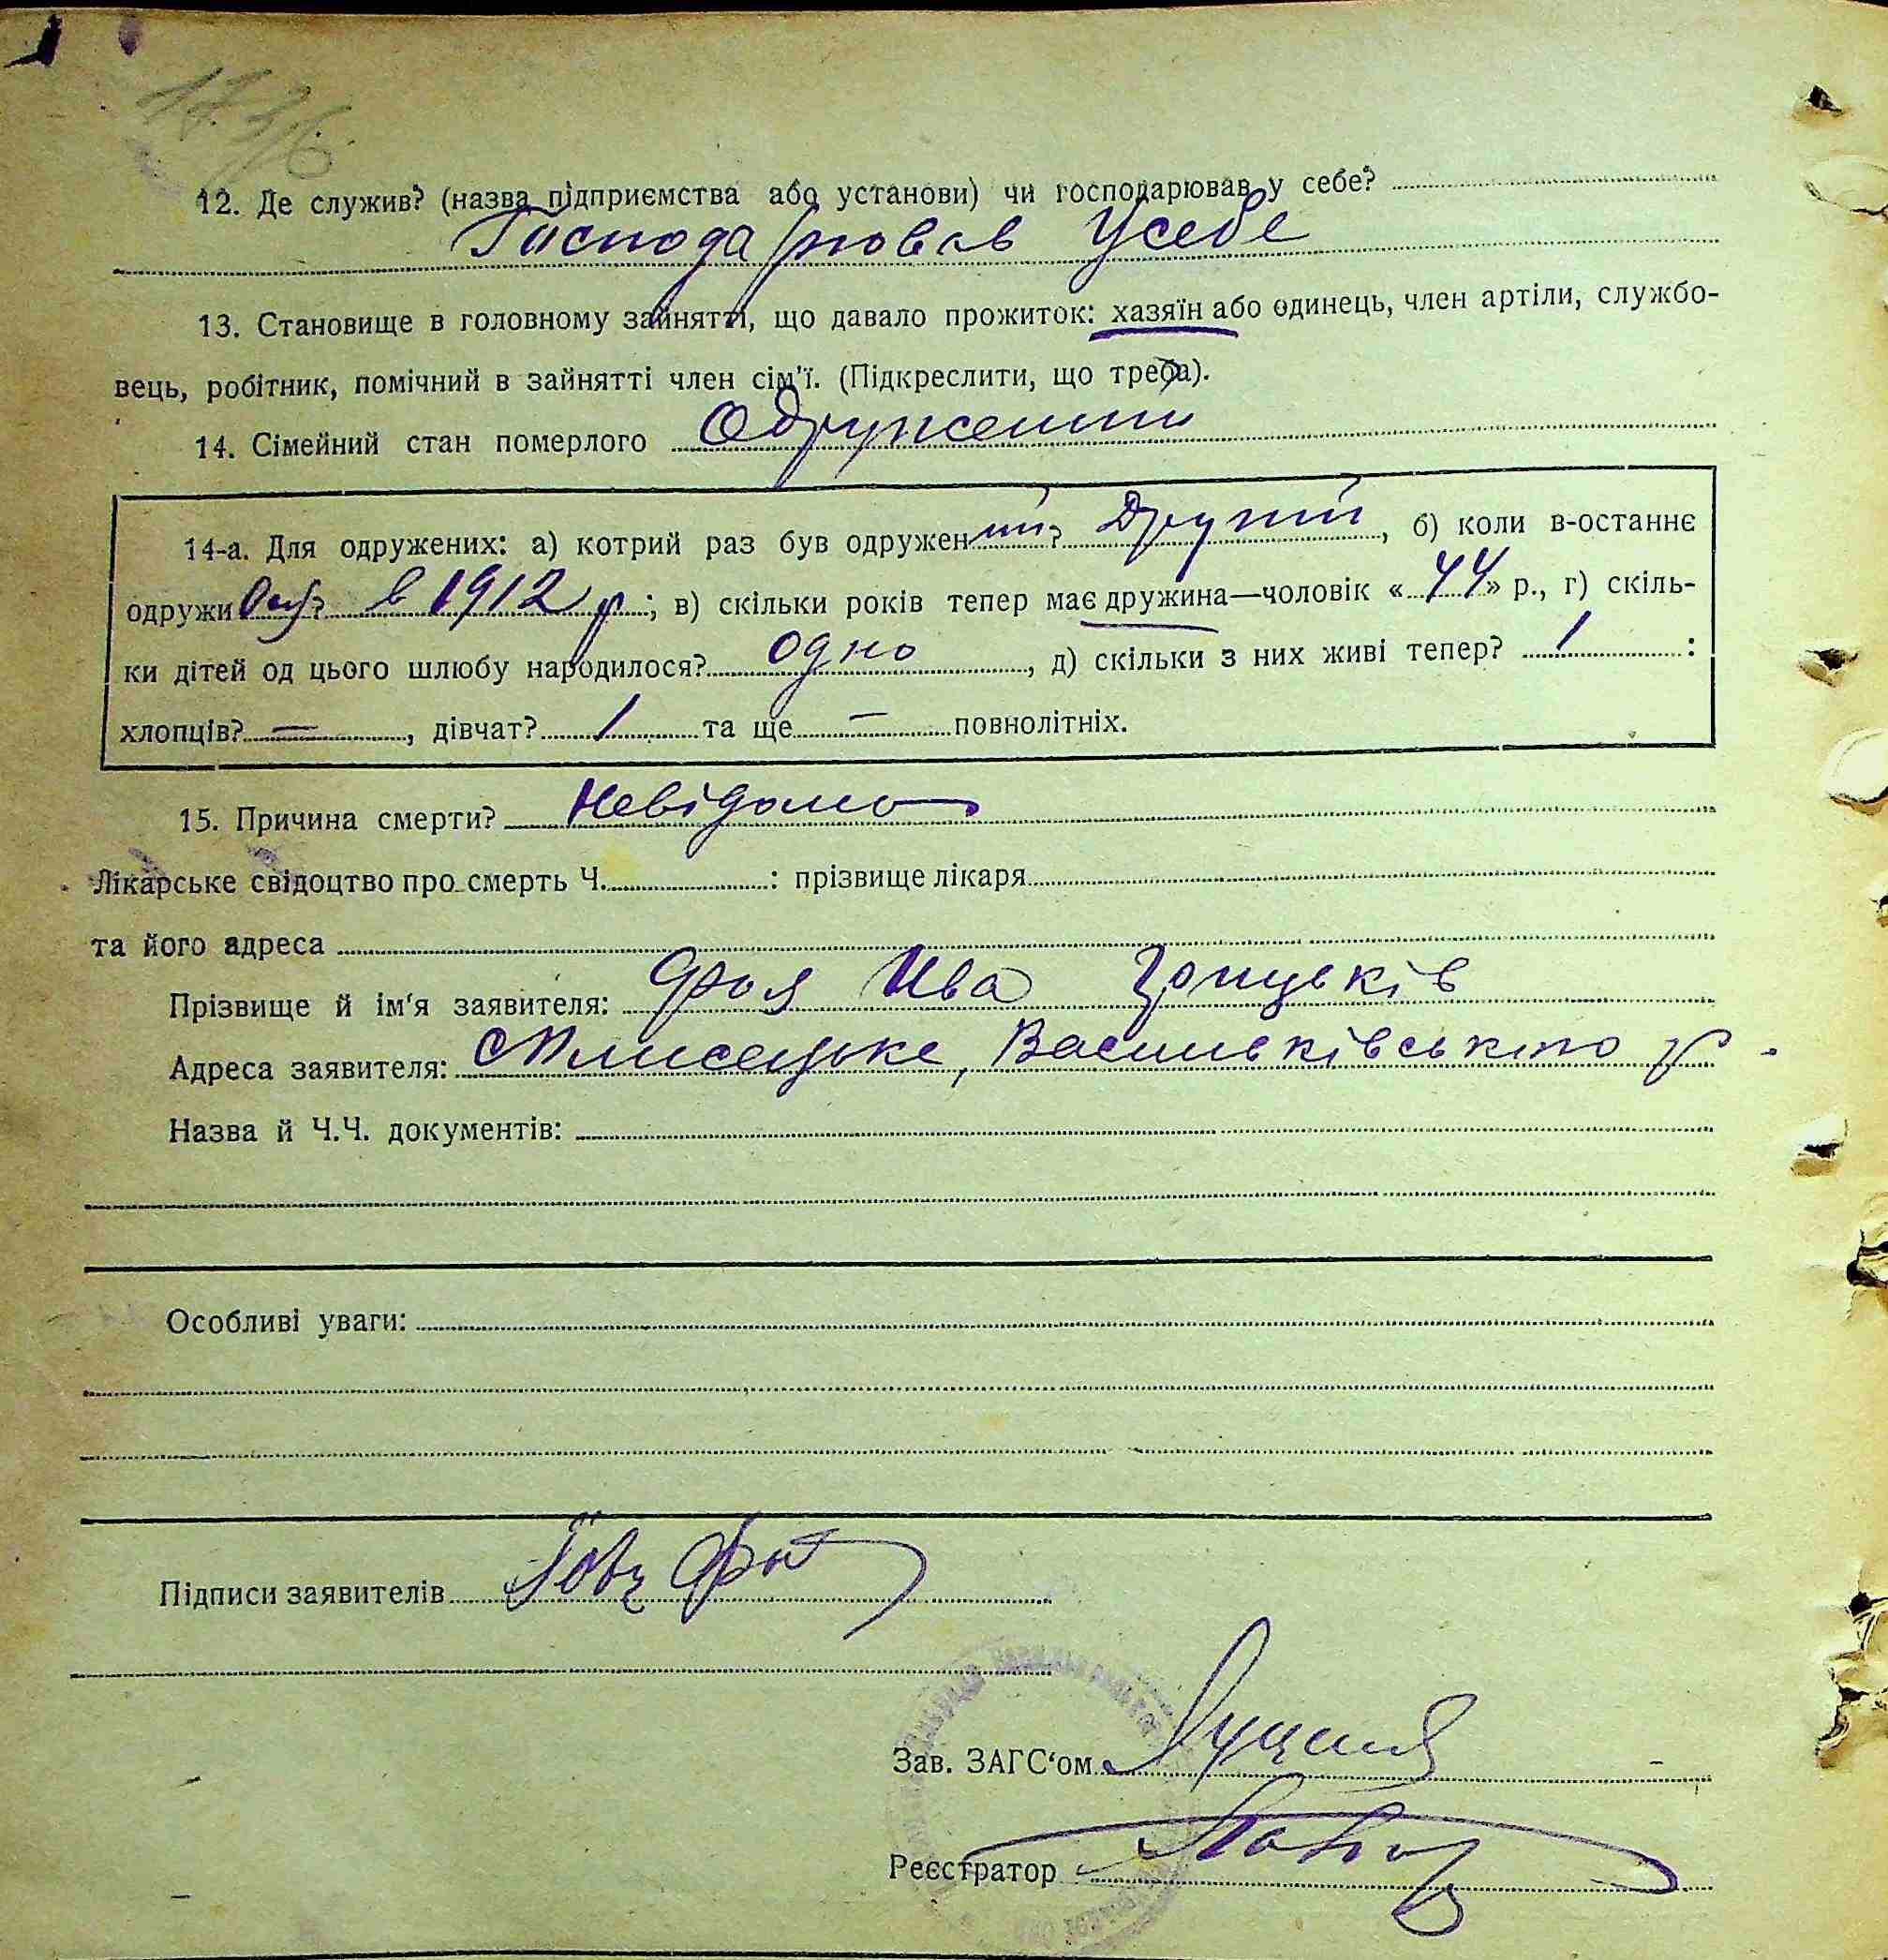 12. Де служив? (назва підприємства або установи) чи господарював у себе?
Господарював Усебе
13. Становище в головному зайнятті, що давало прожиток: хазяїн або одинець, член артіли, службо-
вець, робітник, помічний в зайнятті член сім'ї. (Підкреслити, що треба).
14. Сімейний стан померлого Одружений
14-а. Для одружених: а) котрий раз був одружений? Другий, б) коли в-останнє
одружи в 1912 р.; в) скільки років тепер має дружина—чоловік «44» р., г) скіль-
ки дітей од цього шлюбу народилося? одно, д) скільки з них живі тепер? 1 :
хлопців? —, дівчат? 1 та ще — повнолітніх.
15. Причина смерти? Невідомо
Лікарське свідоцтво про смерть Ч. : прізвище лікаря
та його адреса
Прізвище й ім'я заявителя: Фоя Ива
Адреса заявителя: с Плисецьке, Васильківського р
Назва й Ч.Ч. документів:
Особливі уваги:
Підписи заявителів
Зав. ЗАГС'ом
Реєстратор